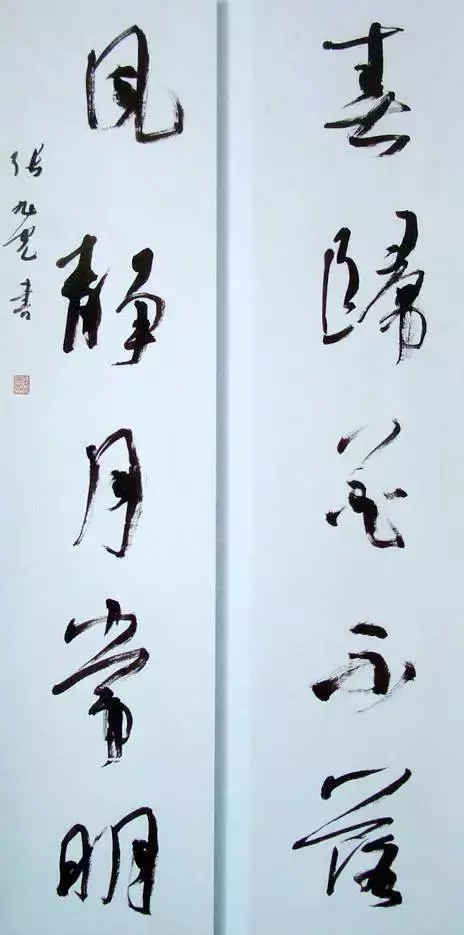 春歸花不落
風靜月常明
張九霓書